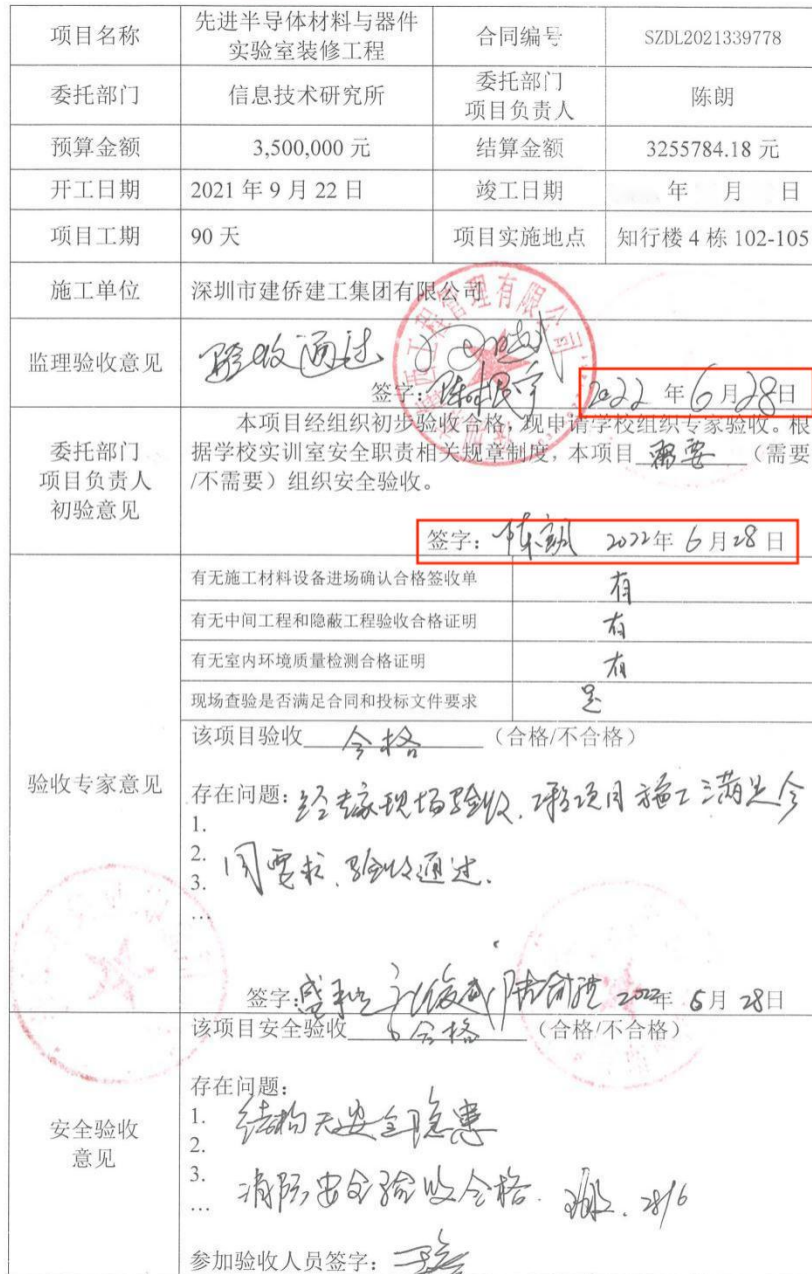 项目名称 先进半导体材料与器件实验室装修工程 合同编号 SZDL2021339778
委托部门 信息技术研究所 委托部门项目负责人 陈朗
预算金额 3,500,000 元 结算金额 3255784.18 元
开工日期 2021 年 9 月 22 日 竣工日期 年 月 日
项目工期 90 天 项目实施地点 知行楼 4 栋 102-105
施工单位 深圳市建侨建工集团有限公司
监理验收意见 验收通过
签字: 2022 年 6 月 28 日
委托部门项目负责人初验意见
本项目经组织初步验收合格，现申请学校组织专家验收。根
据学校实训室安全职责相关规章制度，本项目 需要 （需要
/不需要）组织安全验收。
签字: 陈朗 2022年 6 月 28 日
验收专家意见
有无施工材料设备进场确认合格签收单 有
有无中间工程和隐蔽工程验收合格证明 有
有无室内环境质量检测合格证明 有
现场查验是否满足合同和投标文件要求 是
该项目验收 合格 （合格/不合格）
存在问题: 经专家现场验收，该项目施工满足合
1.
2. 同要求、验收通过.
3.
…
签字: 2022年 6月 28日
安全验收意见
该项目安全验收 合格 （合格/不合格）
存在问题:
1. 结构无安全隐患
2.
3. 消防安全验收合格. 28/6
…
参加验收人员签字: